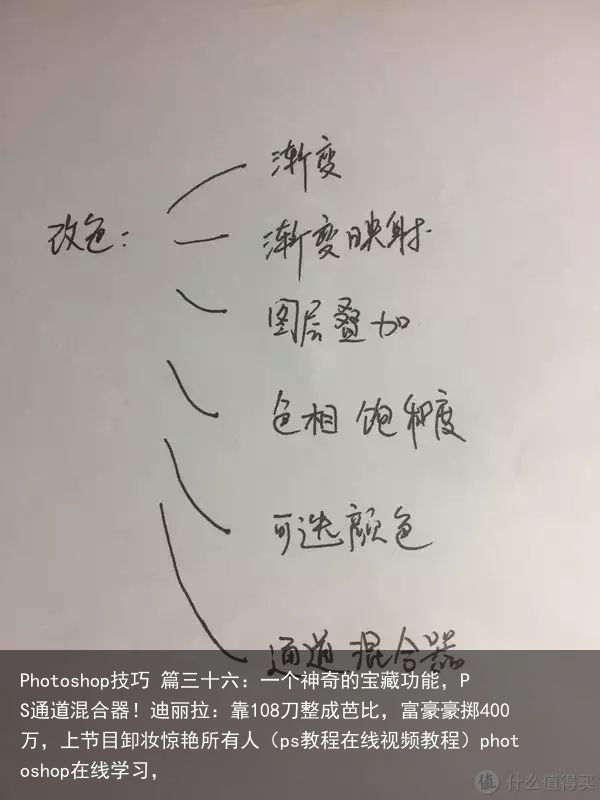 渐变
改色：
渐变映射
图层叠加
色相 饱和度
可选颜色
通道混合器
Photoshop技巧 篇三十六：一个神奇的宝藏功能，P
S通道混合器！迪丽拉：靠108刀整成芭比，富豪豪掷400
万，上节目卸妆惊艳所有人（ps教程在线视频教程）phot
oshop在线学习，
值 什么值得买